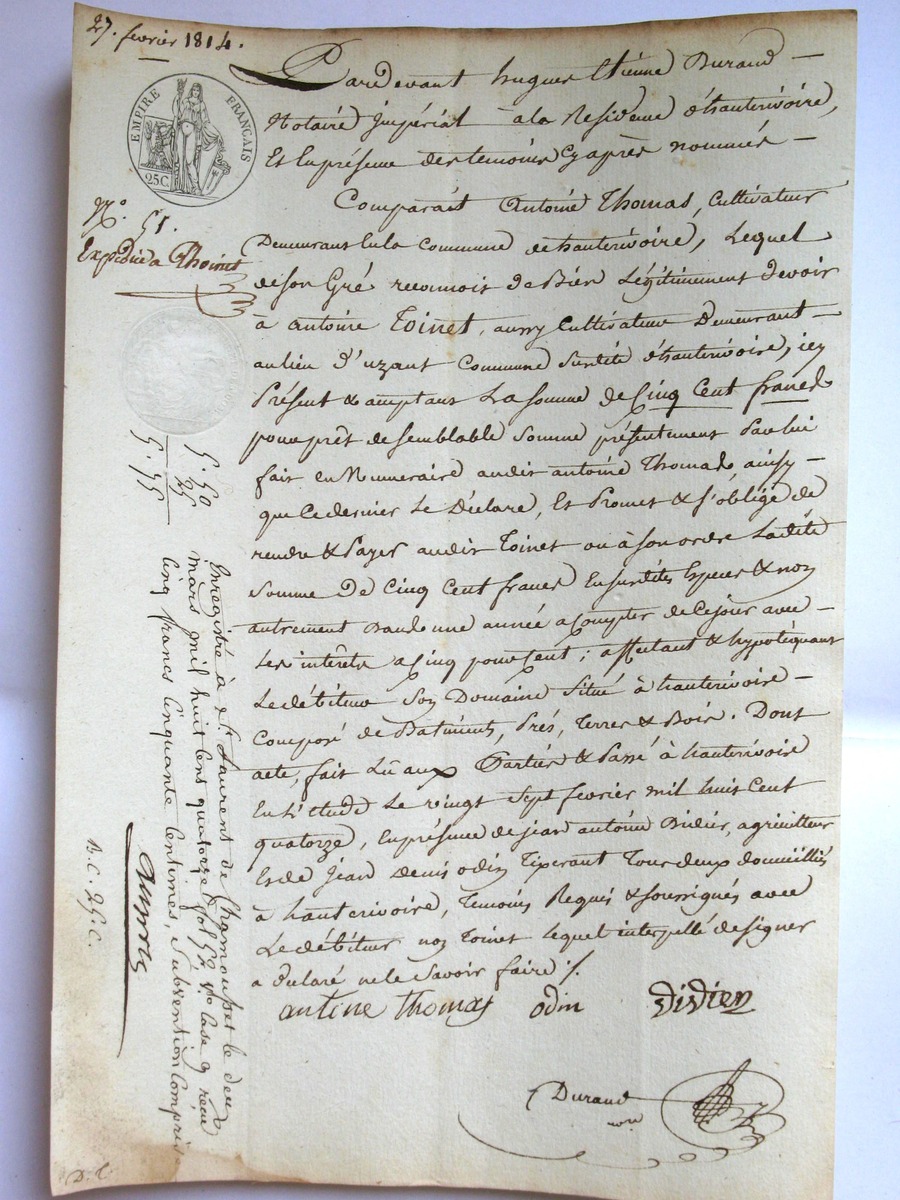 27. fevrier 1814.
EMPIRE FRANÇAIS
25C.
N.º 51.
Expédié a Thoinet
Pardevant hugues Etienne Durand —
Notaire Impérial à la Residence d'hauterivoire,
Et En présence des temoins Cy après nommés —
Comparait Antoine Thomas, Cultivateur
Demeurant En la Commune de hauterivoire, Lequel
de son Gré reconnois de Bien Légitimement devoir
à antoine Toinet, aussy Cultivateur Demeurant —
au lieu d'uzant Commune Surdite d'hauterivoire, icy
Présent & acceptant La somme de Cinq Cent francs
pour prêt de semblable Somme présentement Par lui
fait en Numeraire audit antoine Thomas ainsy —
que Ce dernier Le Déclare, Et Promet & s'oblige de
rendre & Payer audit Toinet ou à son ordre Ladite
Somme De Cinq Cent francs En surdites Especes & non
autrement Dans une année a Compter de Ce jour avec —
Les intérêts a Cinq pour Cent ; affectant & hypotéquant
Le débiteur Son Domaine Situé à hauterivoire —
Composé de Batiments, Prés, Terres & Bois. Dont
acte, fait Lû aux Parties & Passé à hauterivoire
En L'Etude Le vingt Sept fevrier mil huit Cent
quatorze, En présence de jean antoine Didier, agriculteur
Et de Jean Denis odin Tixerant Tous deux domiciliés
à hauterivoire, Temoins Requis & soussignés avec
Le débiteur non Toinet lequel interpellé de signer
a declaré ne le Savoir faire ./.
antoine Thomas odin Didier
Durand
nore
5. 50
25
5. 75
Enregistré à St. Laurent de Chamousset le deux
mars mil huit Cens quatorze fol 52 vo Case 9 reçu
Cinq francs Cinquante Centimes, Subvention Compris
R.C. 25. C.
D. C.